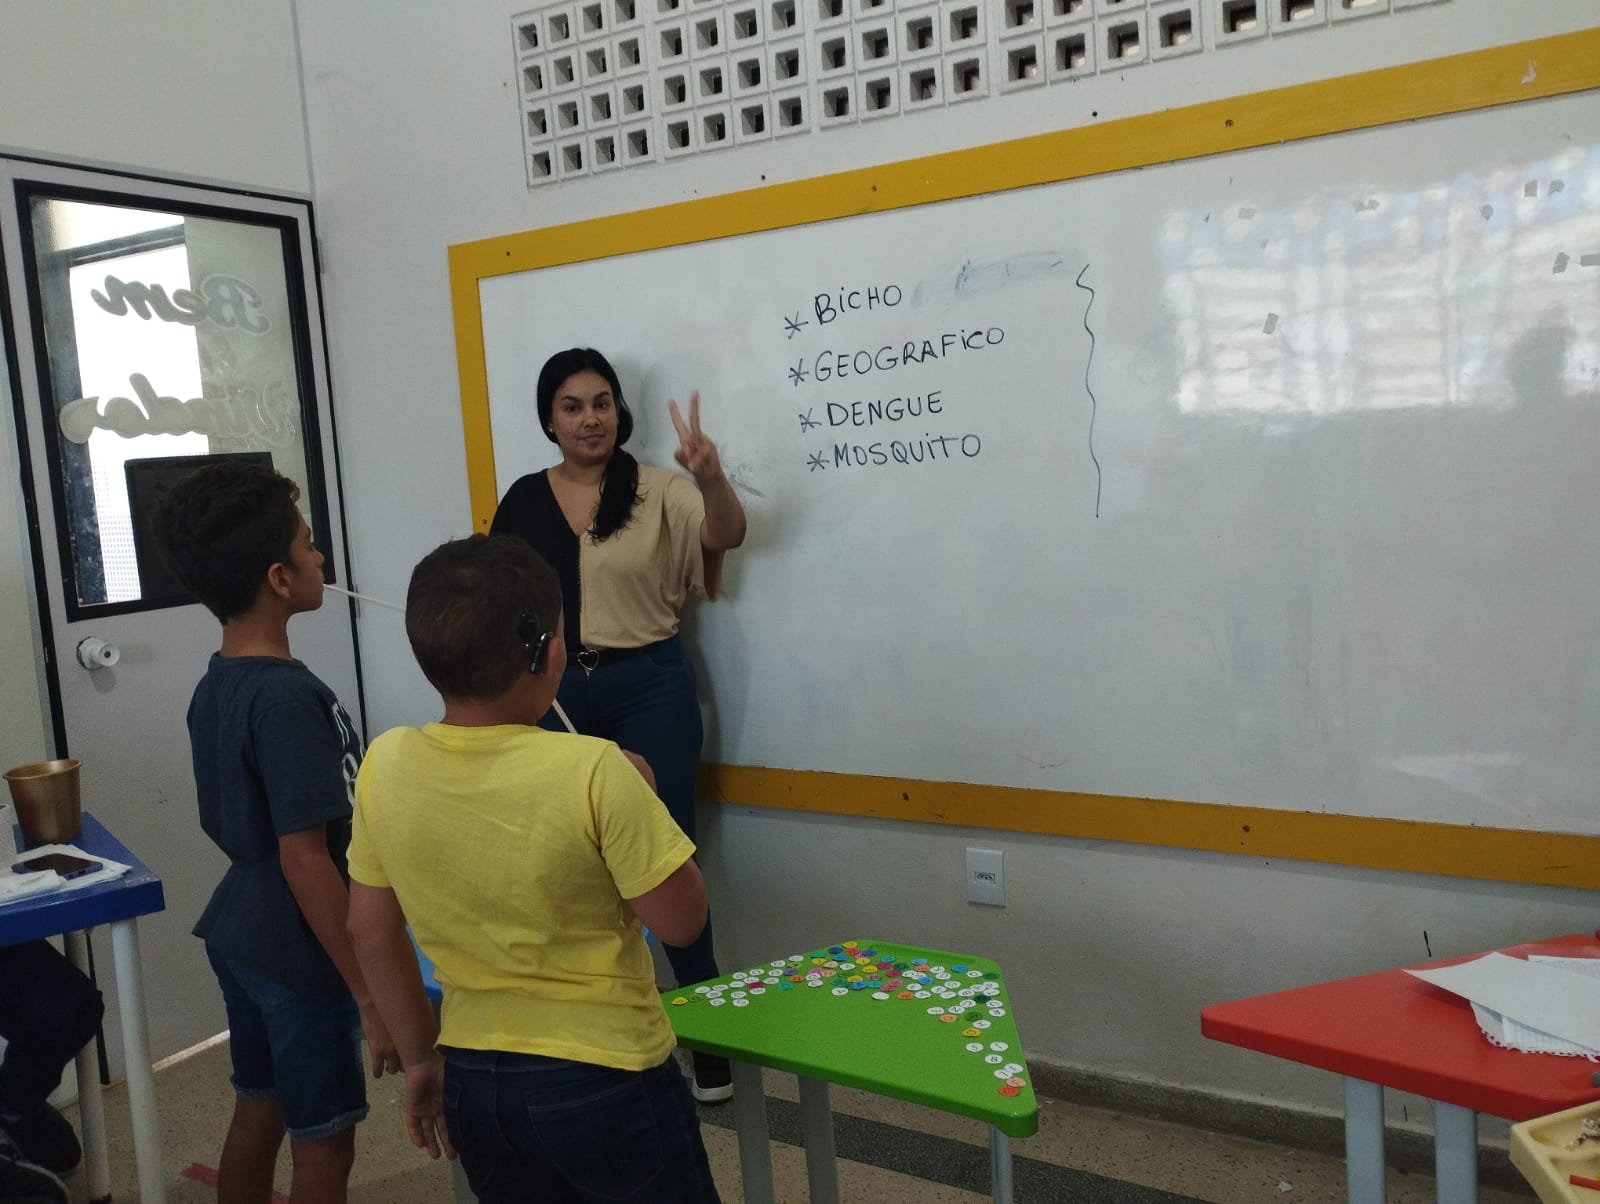 Bem
Vindos
* BICHO
* GEOGRAFICO
* DENGUE
* MOSQUITO